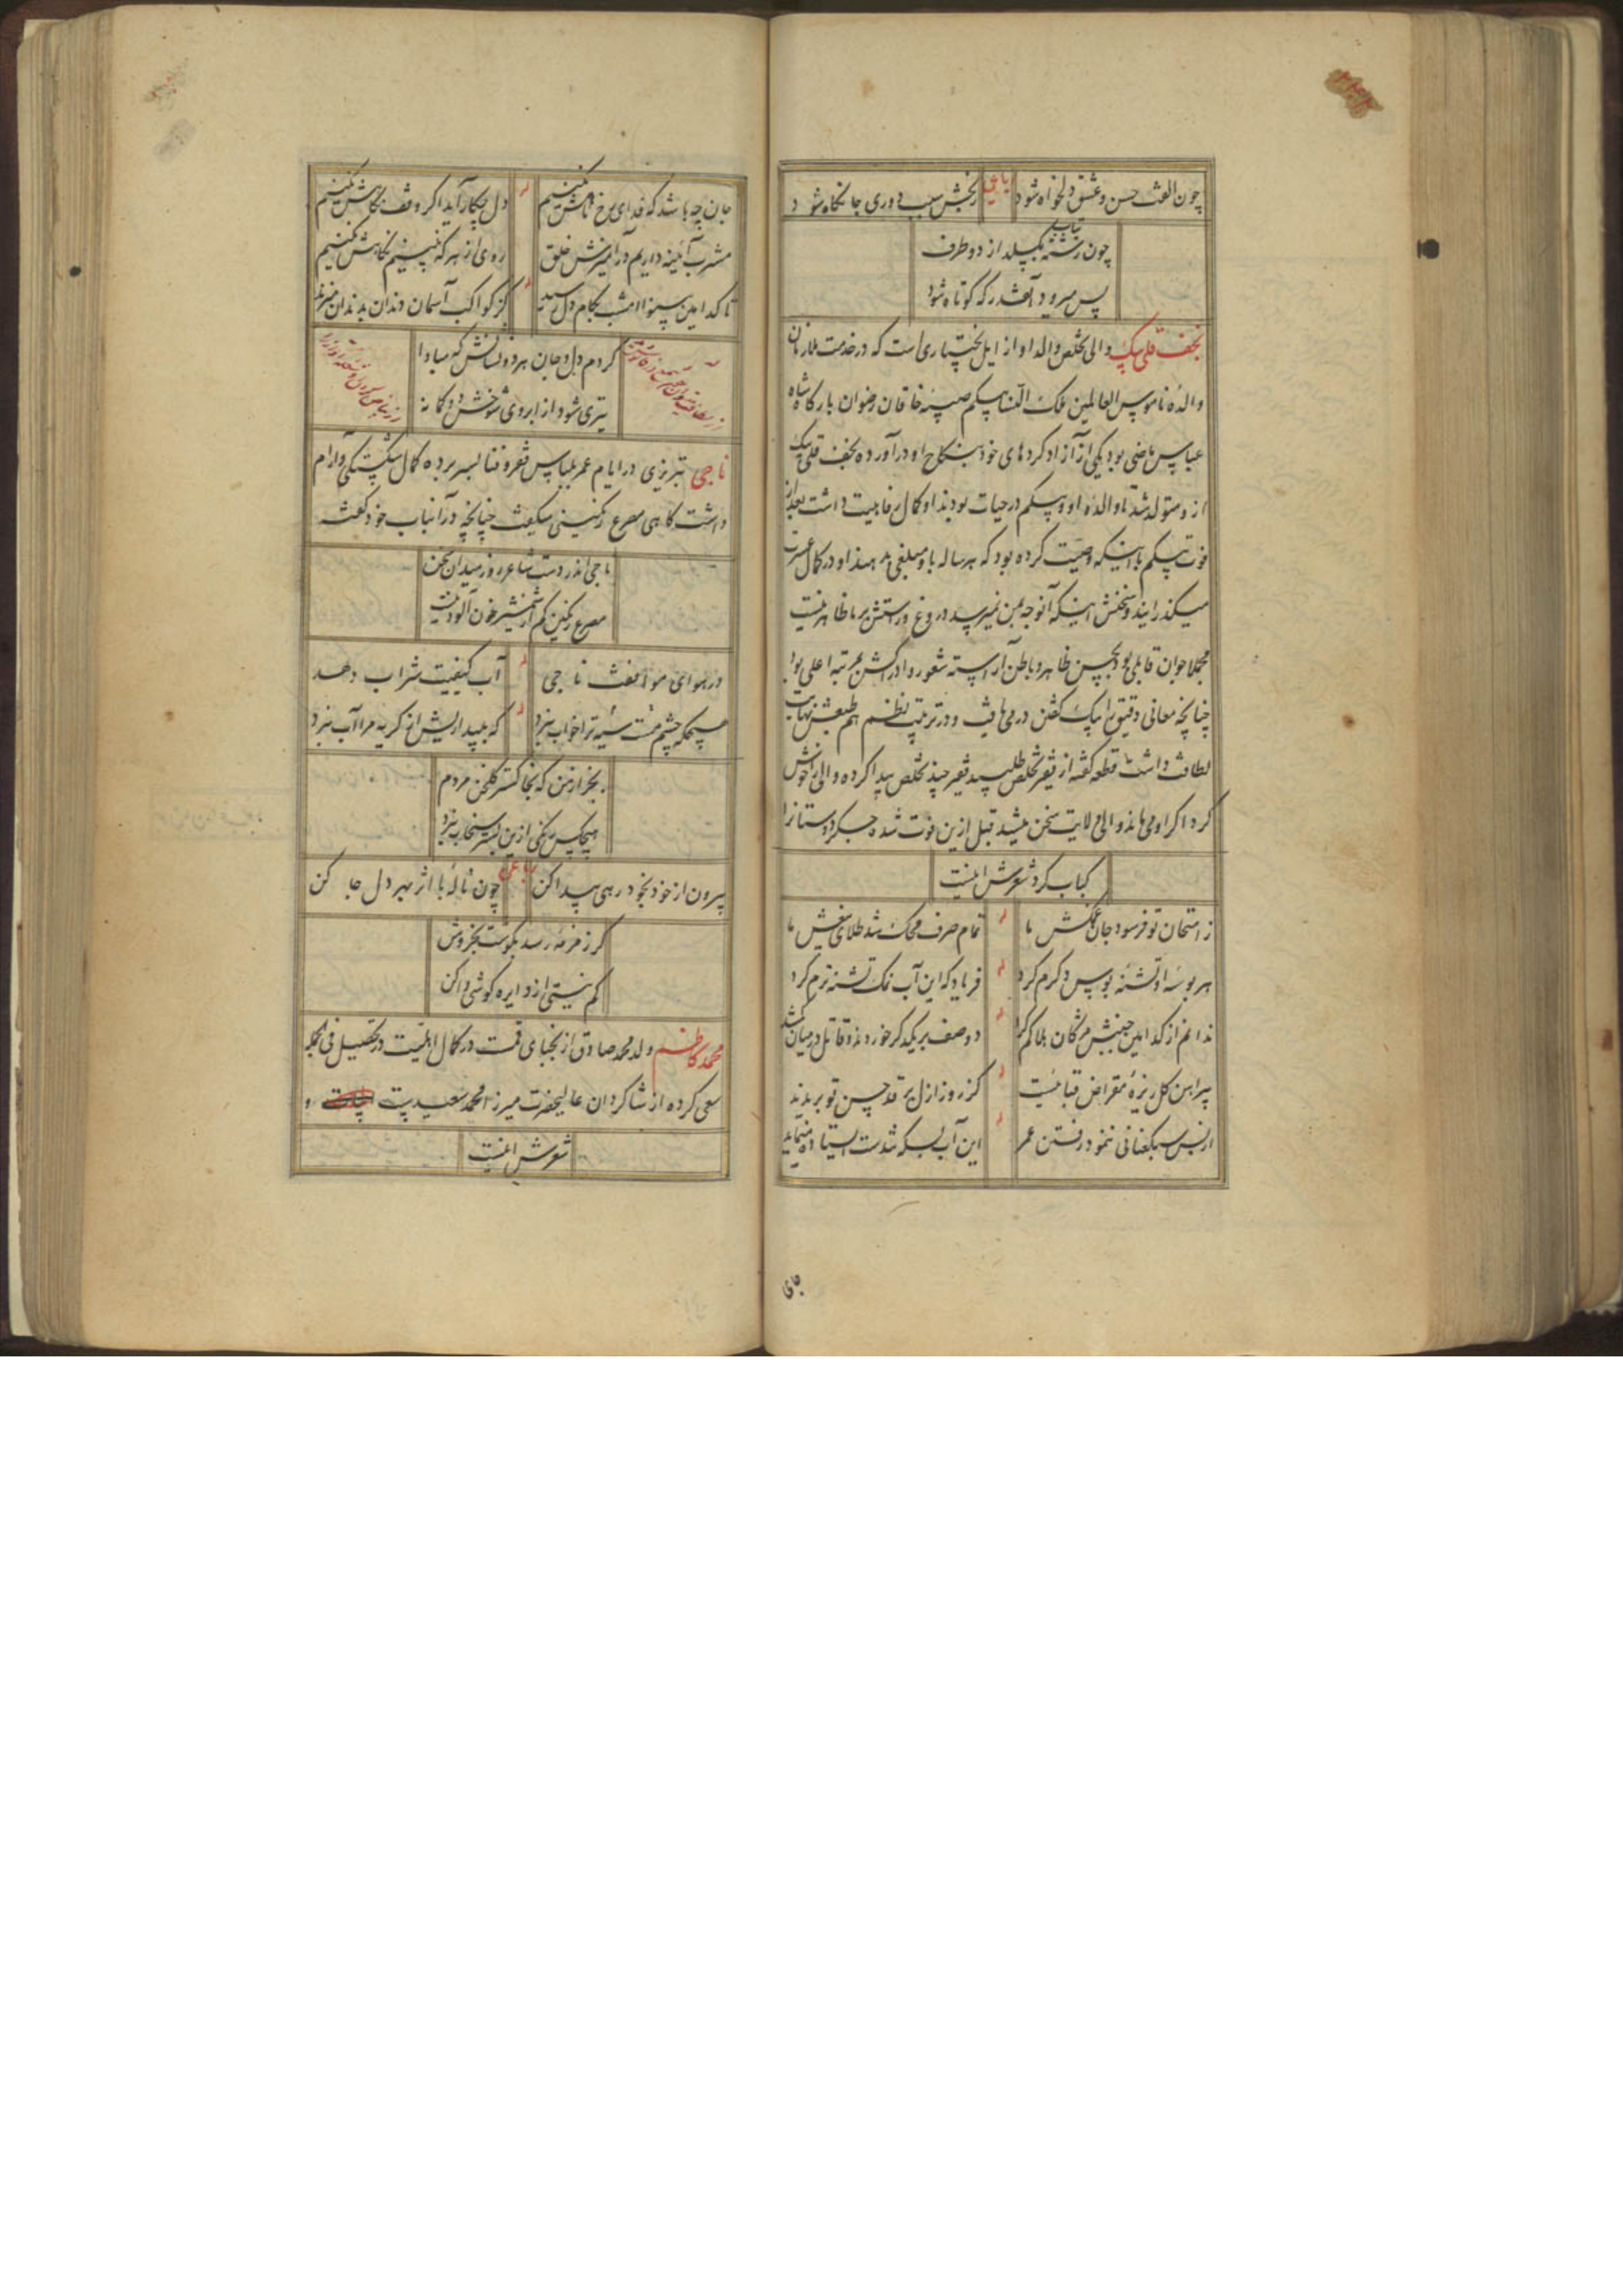 چون الفت حسن و عشق دلخواه شود رباعی رنجش سبب دوری جانکاه شود
چون رشته که بگسلد از دو طرف
پس میرود آنقدر که کوتاه شود
نجف قلی بیک والی تخلص والد او از ایل بختیاری است که در خدمت ملازمان
والده ناموس العالمین ملک النسا بیگم صبیه خاقان رضوان بارگاه شاه
عباس ماضی بود یکی از آزاد کردهای خود بنکاح او درآورده نجف قلی بیک
ازو متولد شد تا والده او و بیگم در حیات بودند او کمال رفاهیت داشت بعد از
فوت بیگم با اینکه وصیت کرده بود که هر ساله باو مبلغی بدهند او در کمال عسرت
میگذرانید و سخنش اینکه آنوجه بمن نمیرسد دروغ و راستش بر ما ظاهر نیست
مجملا جوان قابلی بود بحسن ظاهر و باطن آراسته شعور و ادراکش بمرتبه اعلی بود
چنانچه معانی دقیق را بیک گفتن درمی یافت و در ترتیب نظم هم طبعش نهایت
لطافت داشت قطعه گفته از فقیر تخلص طلبید فقیر چند تخلص پیدا کرده والی را خوش
کرد اگر او می ماند والی ولایت سخن میشد قبل ازین فوت شده جگر دوستانرا
کباب کرد شعرش اینست
ز امتحان تو فرسود جان غمکش ما تمام صرف محک شد طلای بیغش ما
هر بوسه او تشنه بوس دگرم کرد فریاد که این آب نمک تشنه ترم کرد
ندانم از کدامین جنبش مژگان هلاکم کرد دو صف بر یکدگر خوردند و قاتل در میان گم شد
پیراهن گل ریزه مقراض قبائیست کز روز ازل بر قد حسن تو بریدند
از بس سبکعنانی ننمود رفتن عمر این آب بسکه تندست استاده مینماید
جان چه باشد که فدای رخ ماهش نکنیم دل چکار آید اگر وقف نگاهش نکنیم
مشرب آئینه داریم در آمیزش خلق روی از هر که نبینیم نگاهش نکنیم
تا کدامین بینوا امشب بکام دل رسید کز کواکب آسمان دندان بدندان میزند
کردم دل و جان هر دو نشانش که مبادا
تیری شود از ابروی شوخش دو کمانه
ناجی تبریزی در ایام عمر بلباس فقر و فنا بسر برده کمال شکستگی و آرام
داشت گاهی مصرع رنگینی میگفت چنانچه در آنباب خود گفته
ناجی اندر دست شاعر روز میدان سخن
مصرع رنگین کم از شمشیر خون آلود نیست
در هوای موافقت ناجی آب کیفیت شراب دهد
هیچکه چشم مست سیه ترا خواب نبرد که ببیداریش از گریه مرا آب نبرد
بجز از من که بخاکستر گلخن مردم
هیچکس رنگی ازین بستر سنجاب نبرد
بیرون از خود بخود رهی پیدا کن رباعی چون ناله با اثر بهر دل جا کن
گر زمزمه رسد بگوشت بخروش
کم نیستی از دایره گوشی وا کن
محمد کاظم ولد محمد صادق از نجبای قمست در کمال اهلیت در تحصیل فی الجمله
سعی کرده از شاگردان عالیحضرت میرزا محمد سعید
شعرش اینست